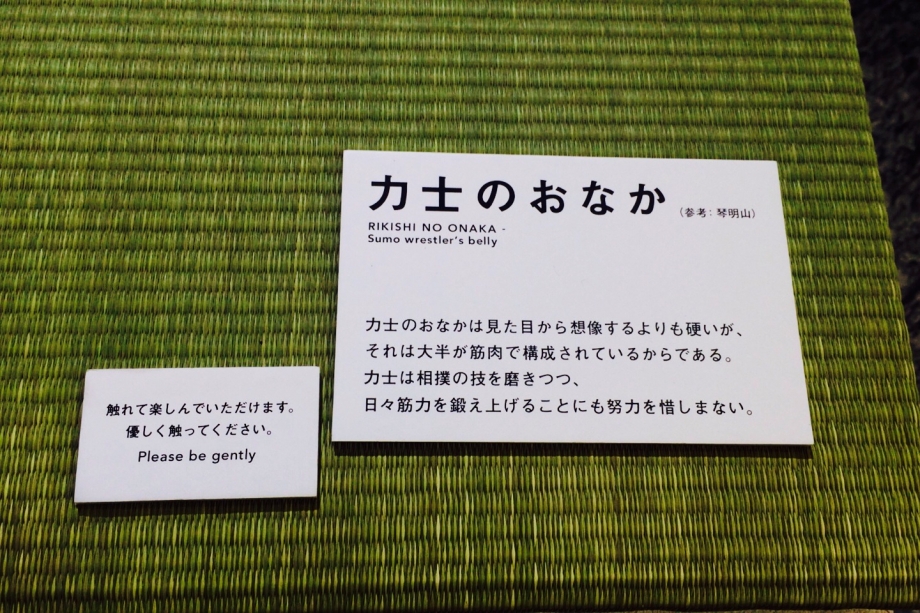 力士のおなか (参考:琴明山)
RIKISHI NO ONAKA -
Sumo wrestler's belly
力士のおなかは見た目から想像するよりも硬いが、
それは大半が筋肉で構成されているからである。
力士は相撲の技を磨きつつ、
日々筋力を鍛え上げることにも努力を惜しまない。
触れて楽しんでいただけます。
優しく触ってください。
Please be gently